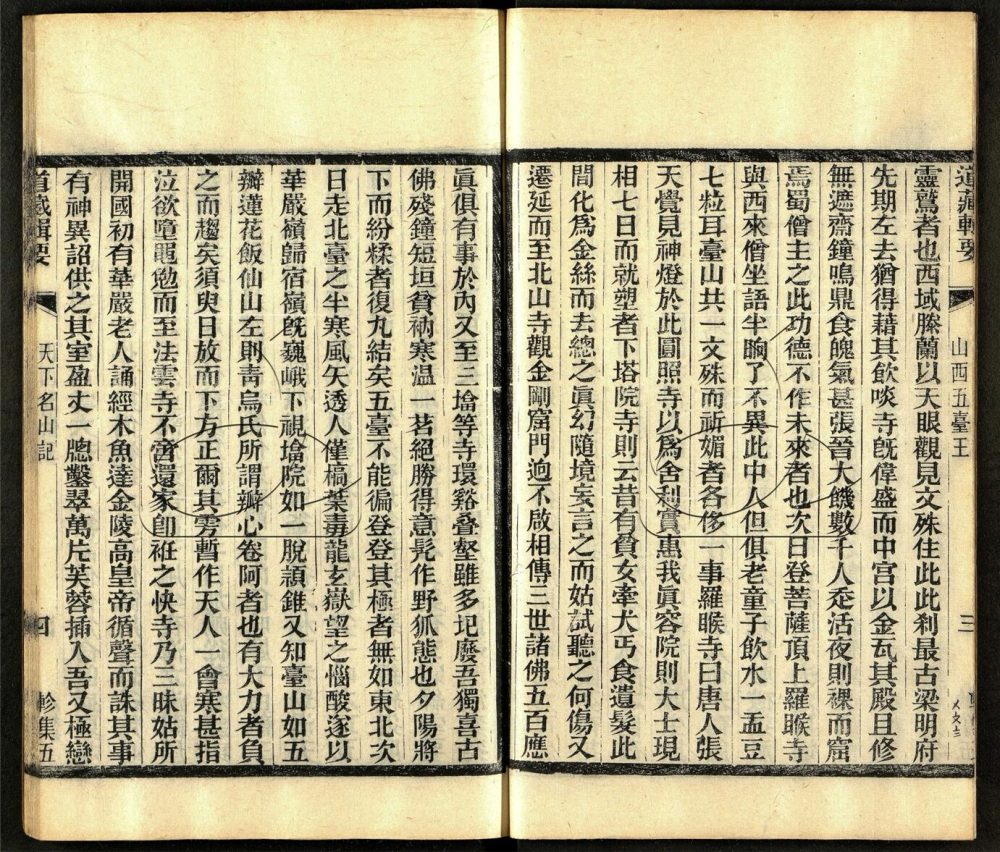 道藏輯要
山西五臺王
三
靈鷲者也西域滕蘭以天眼觀見文殊住此此刹最古梁明府
先期左去猶得藉其飲啖寺旣偉盛而中宮以金瓦其殿且修
無遮齋鐘鳴鼎食魄氣甚張晉大饑數千人走活夜則裸而窟
焉蜀僧主之此功德不作未來者也次日登菩薩頂上羅睺寺
與西來僧坐語半晌了不異此中人但俱老童子飲水一盂豆
七粒耳臺山共一文殊而祈媚者各侈一事羅睺寺曰唐人張
天覺見神燈於此圓照寺以爲舍利實惠我眞容院則大士現
相七日而就塑者下塔院寺則云昔有貧女牽犬丐食遺髮此
間化爲金絲而去總之眞幻隨境妄言之而姑試聽之何傷又
遷延而至北山寺觀金剛窟門逈不啟相傳三世諸佛五百應
眞俱有事於內又至三塔等寺環谿叠壑雖多圮廢吾獨喜古
佛殘鐘短垣貧衲寒温一茗絕勝得意髡作野狐態也夕陽將
下而紛糅者復九結矣五臺不能徧登登其極者無如東北次
日走北臺之半寒風矢透人僅槁葉毒龍玄嶽望之惱酸遂以
華嚴嶺歸宿嶺旣巍峨下視塔院如一脫頴錐又知臺山如五
瓣蓮花飯仙山左則靑烏氏所謂瓣心卷阿者也有大力者負
之而趨矣須臾日放而下方正爾其雱暫作天人一會寒甚指
泣欲噎黽勉而至法雲寺不啻還家卽袵之快寺乃三昧姑所
開國初有華嚴老人誦經木魚達金陵高皇帝循聲而誅其事
有神異詔供之其室盈丈一牕鑿翠萬片芙蓉插入吾又極戀
道藏輯要
天下名山記
四
軫集五